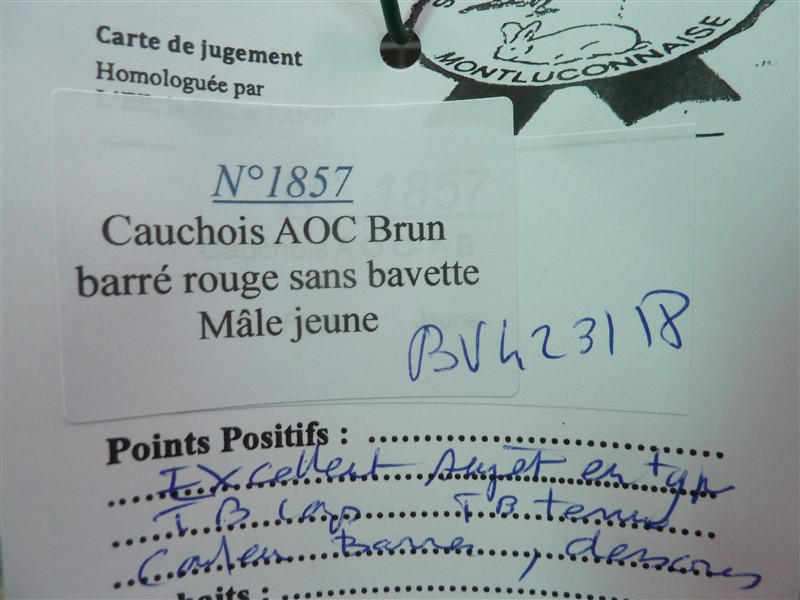 Carte de jugement
MONTLUCONNAISE
Homologuée par
N°1857
1857
Cauchois AOC Brun
barré rouge sans bavette
Mâle jeune
Jeune
BV423 / 18
Points Positifs :
Excellent sujet en typ
TB corp TB tenue
Couleur Barres, dessous